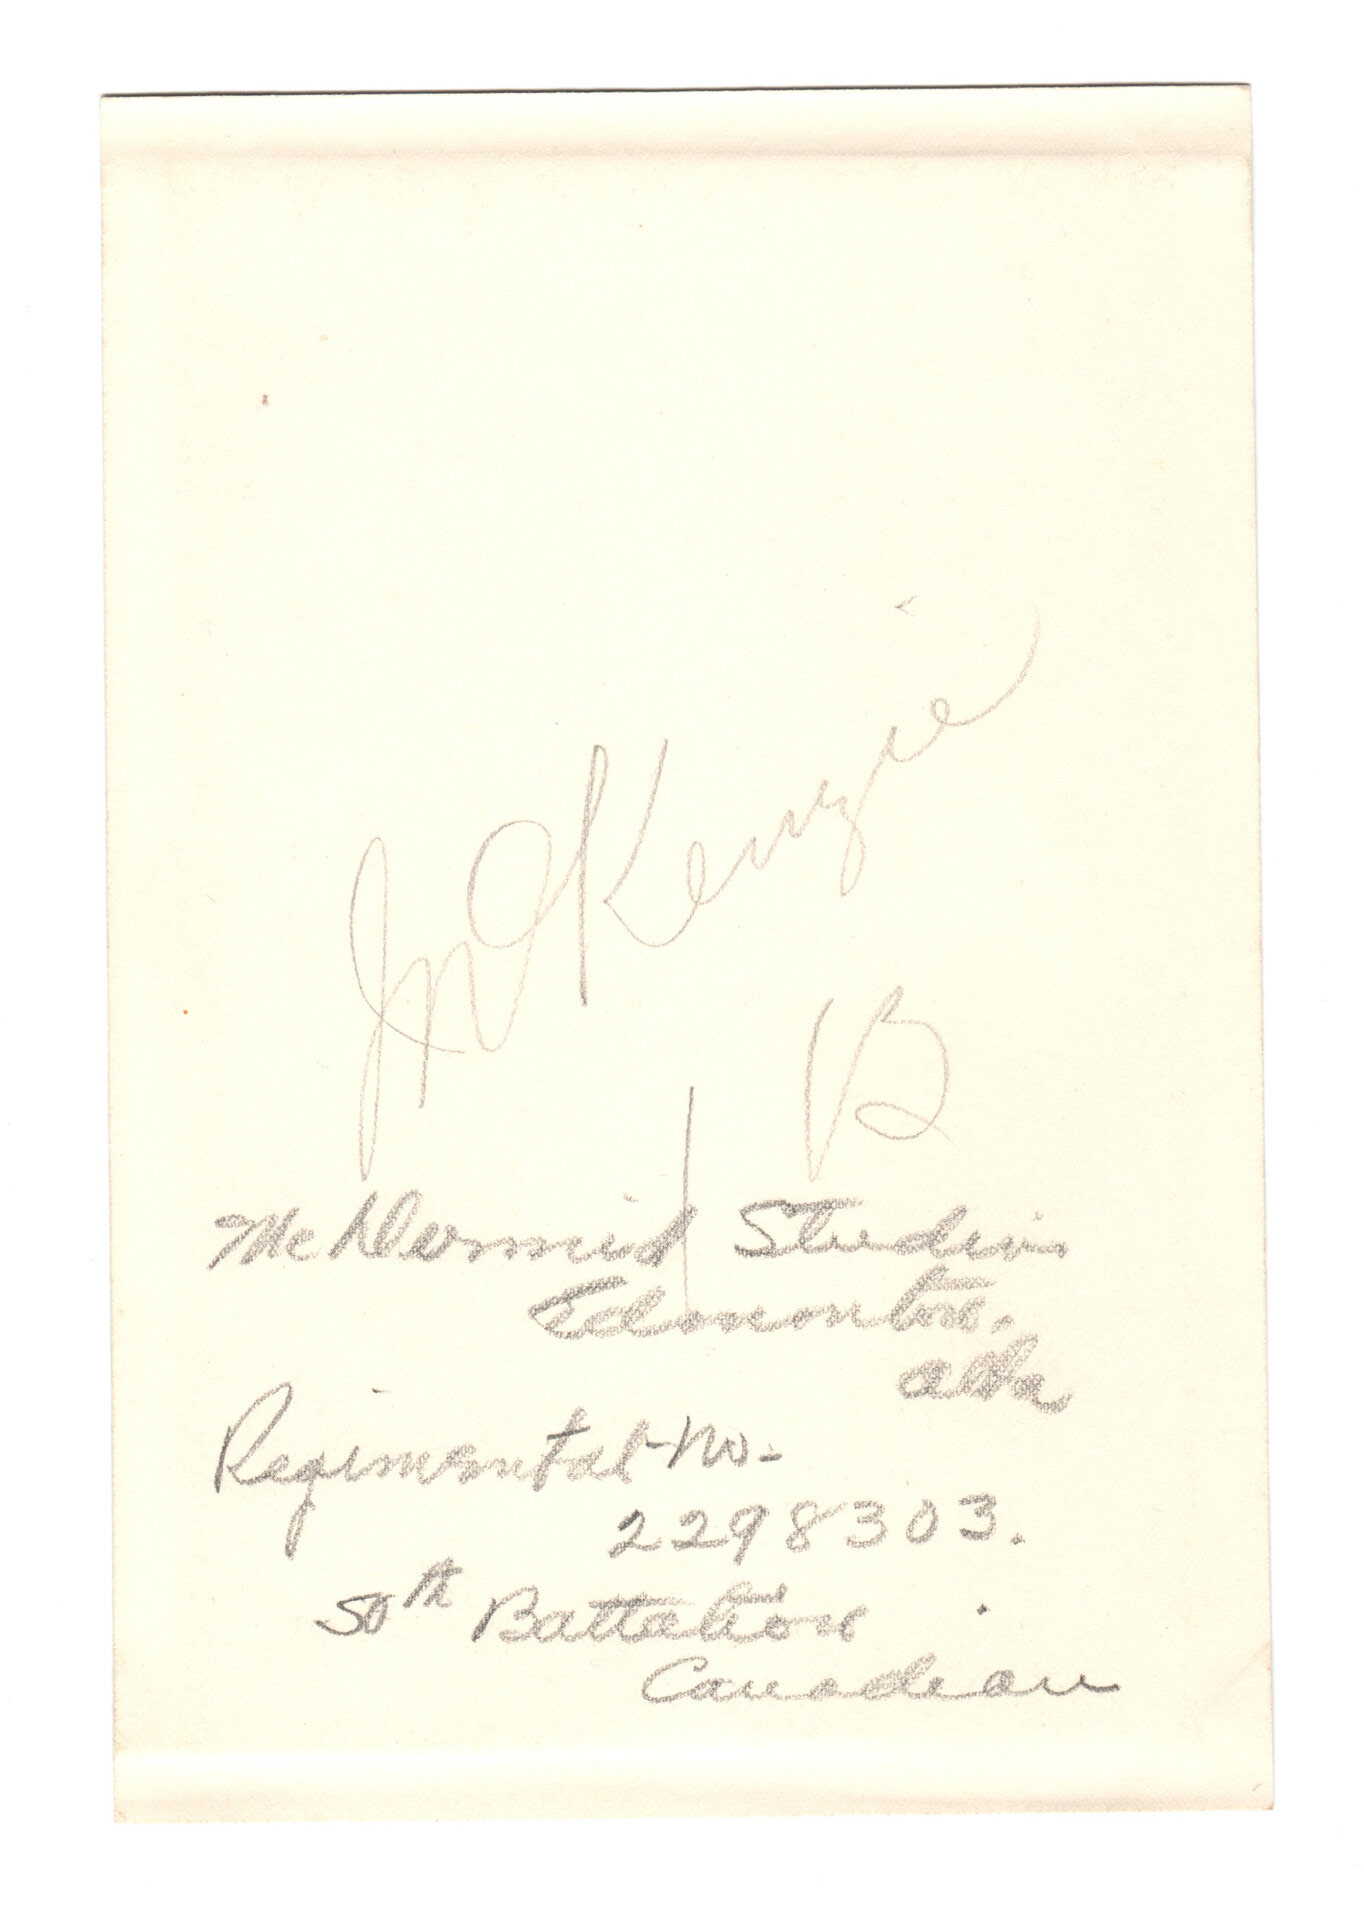 McKenzie
B
McDermid Studios
Edmonton.
Alta
Regimental-No.
2298303.
50th Battalion
Canadian